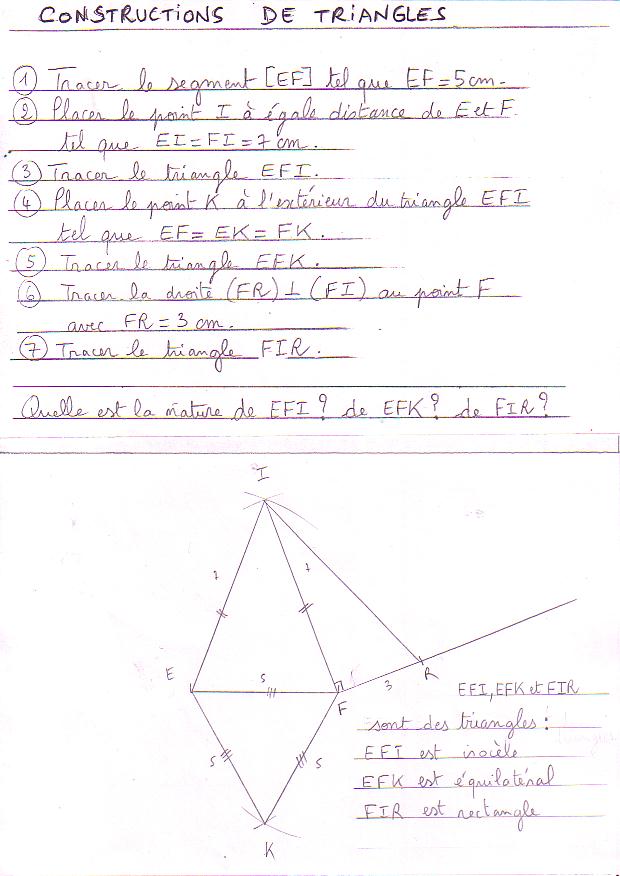 CONSTRUCTIONS DE TRIANGLES
① Tracer le segment [EF] tel que EF = 5 cm.
② Placer le point I à égale distance de E et F.
tel que EI = FI = 7 cm.
③ Tracer le triangle EFI.
④ Placer le point K à l'extérieur du triangle EFI
tel que EF = EK = FK.
⑤ Tracer le triangle EFK.
⑥ Tracer la droite (FR) ⊥ (FI) au point F
avec FR = 3 cm.
⑦ Tracer le triangle FIR.
Quelle est la nature de EFI ? de EFK ? de FIR ?
I
7
7
E
5
F
3
R
5
5
K
EFI, EFK et FIR
sont des triangles :
EFI est isocèle
EFK est équilatéral
FIR est rectangle